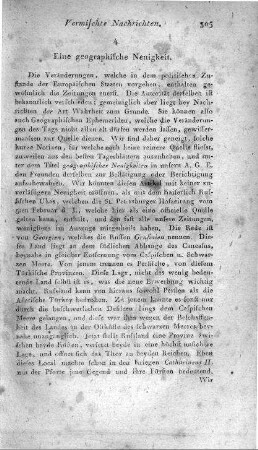 Vermischte Nachrichten. 305
4.
Eine geographische Neuigkeit.
Die Veränderungen, welche in dem politischen Zu-
stande der Europäischen Staaten vorgehen, enthalten ge-
wöhnlich die Zeitungen zuerst. Die Autorität derselben ist
bekanntlich verschieden; gleichwohl liegt bey Nach-
richten der Art Wahrheit zum Grunde. Sie können also
auch Geographischen Ephemeriden, welche die Veränderun-
gen des Tags nicht allein oft aufbewahren, sondern
zur Quelle dienen. Wir sind daher geneigt, solche
kurze Notizen, für welche noch keine reinere Quelle fliesst,
zuweilen aus den besten Tagesblättern auszuheben, und un-
ter dem Titel geographische Neuigkeiten in unsern A. G. E.
den Freunden derselben zur Bestätigung oder Berichtigung
aufzubewahren. Wir können diesen Artikel mit keiner zu-
verlässigern Neuigkeit anfangen, als mit dem kaiserlich Rus-
sischen Ukas, welchen die St. Petersburger Hofzeitung vom
Februar d. J., welche hier als eine officielle Quelle
gelten kann, enthält, und den alle andere Zeitungen,
wenigstens im Auszuge mitgetheilt haben. Die Rede ist
von Georgien, welches die Russen Grusinien nennen. Dies
Land liegt auf dem südlichen Abhange des Caucasus,
beynahe in gleicher Entfernung vom Caspischen u. Schwar-
zen Meere. Von jenem trennen es Persische, von diesem
Türkische Provinzen. Diese Lage, nicht das wenig bedeu-
tende Land selbst ist es, was die neue Erwerbung wichtig
macht. Russland kann von hieraus sowohl Persien als die
Asiatische Türkey bedrohen. Zu jenem konnte es sonst nur
durch die beschwerlichen Defileen längs dem Caspischen
Meere gelangen, und diese war ihm wegen der Beschaffen-
heit des Landes an der Ostküste des schwarzen Meeres bey-
nahe unzugänglich. Jetzt stellt Russland eine Provinz zwi-
schen beyde Feinde, vereitelt beyde in eine höchst nachtheilige
Lage, und öffnet sich das Thor zu beyden Reichen. Eben
dieses Local machte schon in den Kriegen Catharinens II.
mit der Pforte jene Gegend und ihre Fürsten bedeutend.
Wir